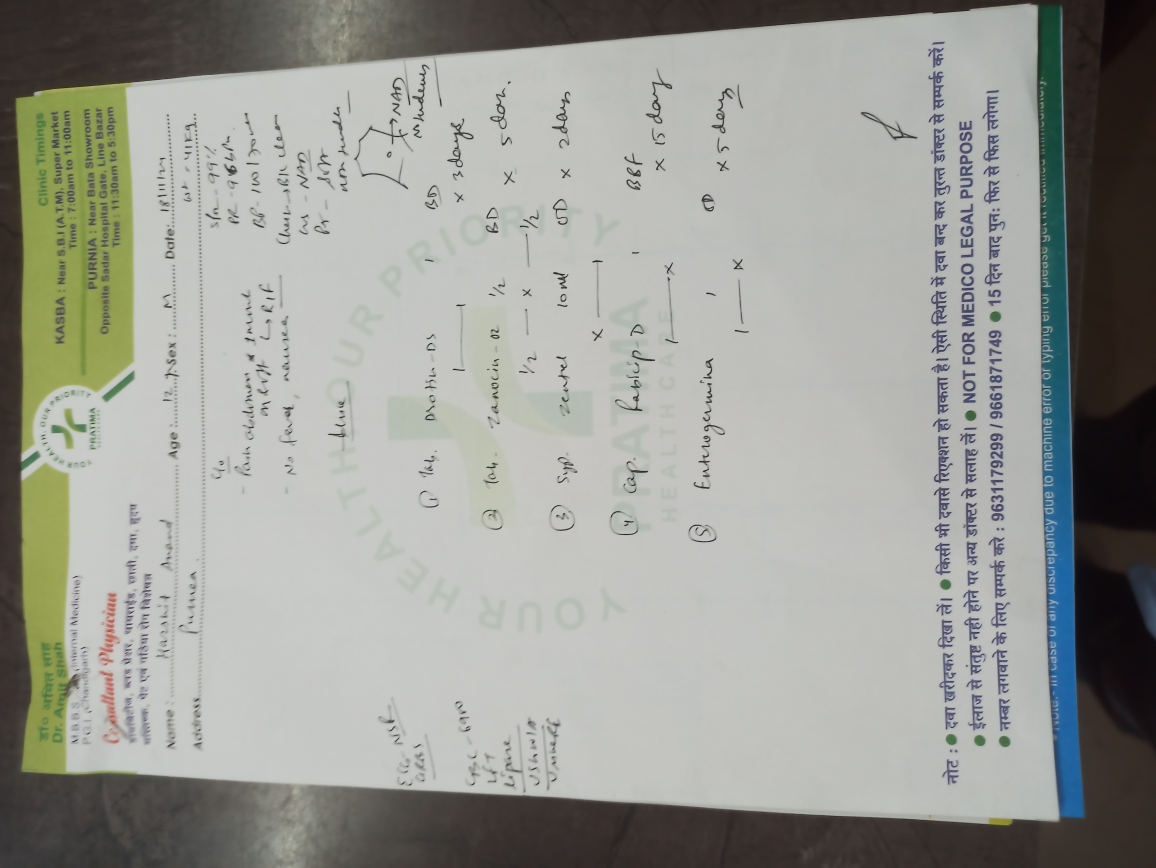 डॉ० अमित साह
Dr. Amit Shah
M.B.B.S., (Internal Medicine)
P.G.I. (Chandigarh)
Consultant Physician
Clinic Timings
KASBA : Near S.B.I (A.T.M), Super Market
Time : 7:00am to 11:00am
PURNIA : Near Bata Showroom
Opposite Sadar Hospital Gate, Line Bazar
Time : 11:30am to 5:30pm
YOUR HEALTH OUR PRIORITY
PRATIMA
Name : Harshit Anand Age : 12 y Sex : M Date: 18/11/24
Address Purnea. wt - 41kg
C/o
- Pain abdomen
→ RIF
- No fever, nausea
SpO2 - 99%
PR - 96 b/m
BP - 100/70
Chest
CVS - NAD
P/A - soft
non tender
NAD
(1) Tab. Drotin-DS 1 BD
1 —— 1 x 3 days
(2) Tab. Zanocin-OZ 1/2 BD
1/2 — x — 1/2 x 5 days.
(3) Syp. Zentel 10ml OD x 2 days
x —— 1
(4) Cap. Rabicip-D 1 BBF
1 —— x x 15 days
(5) Enterogermina 1 OD
1 — x x 5 days
ECG - NSR
GRBS
CBC - 6900
LFT
Lipase
USG W/A
YOUR HEALTH OUR PRIORITY
PRATIMA
HEALTH CARE
नोट : ● दवा खरीदकर दिखा लें। ● किसी भी दवासे रिएक्शन हो सकता है। ऐसी स्थिति में दवा बन्द कर तुरन्त डॉक्टर से सम्पर्क करें।
● ईलाज से संतुष्ट नही होने पर अन्य डॉक्टर से सलाह लें। ● NOT FOR MEDICO LEGAL PURPOSE
● नम्बर लगवाने के लिए सम्पर्क करे : 9631179299 / 9661871749 ● 15 दिन बाद पुनः फिर से फिस लगेगा।
Note:- In case of any discrepancy due to machine error or typing error please get it rectified immediately.